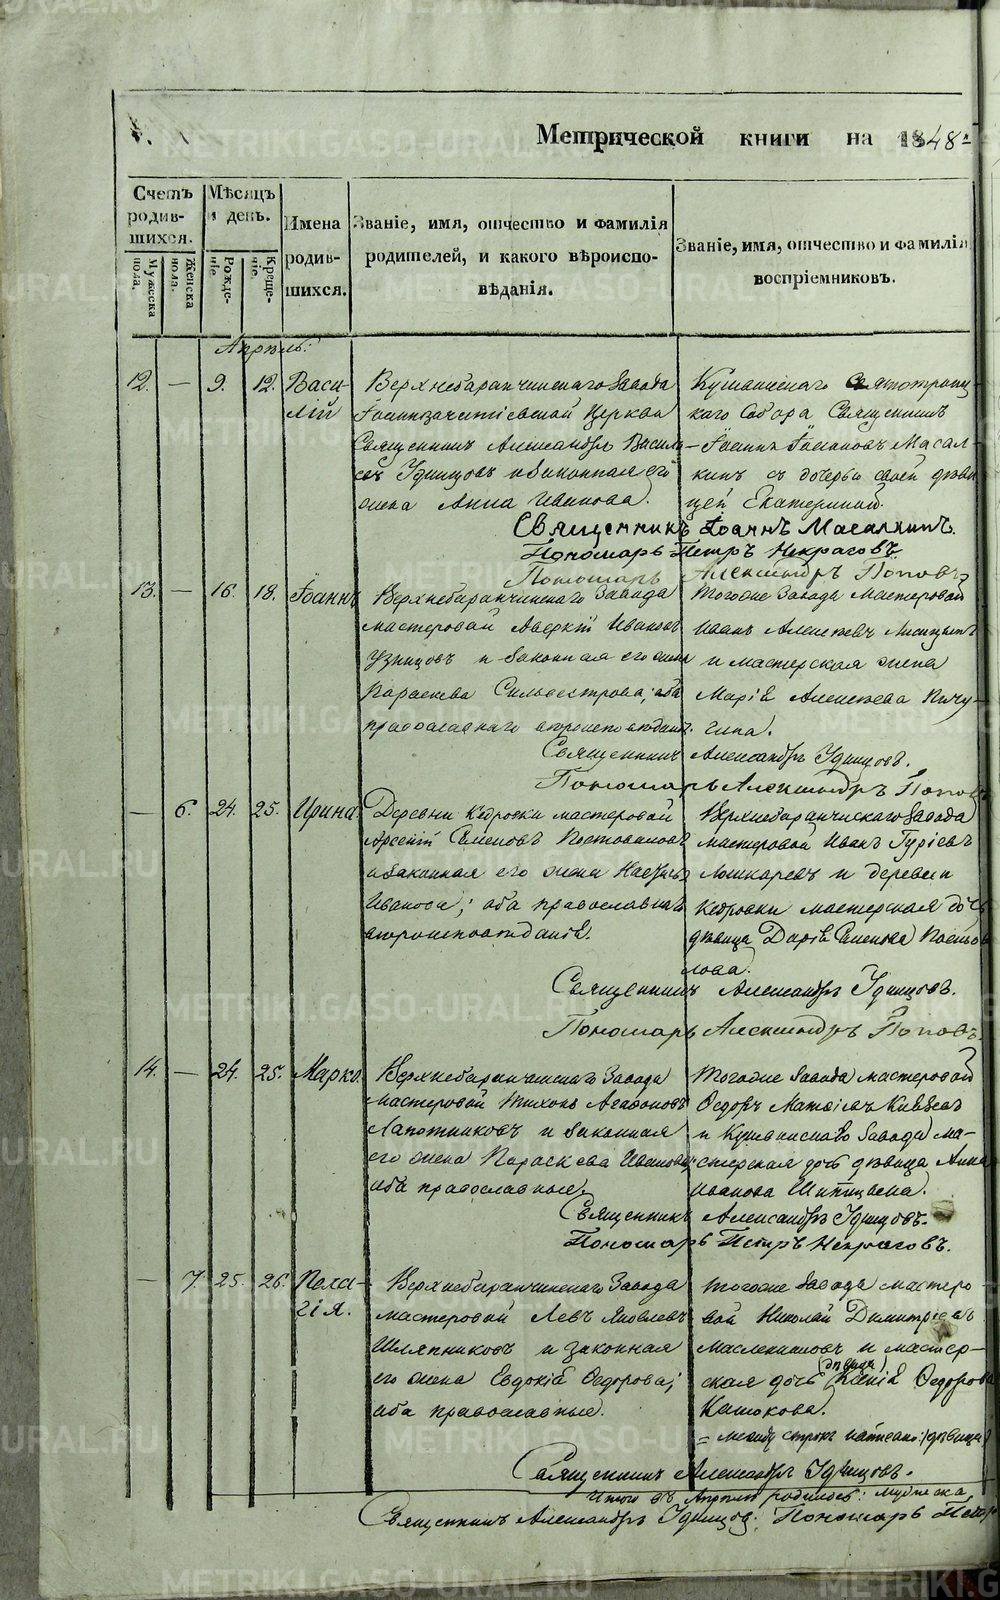 Метрической книги на 1848 г
Счетъ родившихся.
Мужеска пола.
Женска пола.
Мѣсяцъ и день.
Рожденіе.
Крещеніе.
Имена родившихся.
Званіе, имя, отчество и фамилія
родителей, и какого вѣроиспо-
вѣданія.
Званіе, имя, отчество и фамилія
воспріемниковъ.
Апрѣль:
12. — 9. 12. Васи-
лій
Верхнебаранчинскаго завода
Іоаннозачатіевской Церкви
Священникъ Александръ Василь-
евъ Удинцовъ и законная его
жена Анна Иванова.
Кушвинскаго Святотроиц-
каго Собора Священникъ
Іоаннъ Іоанновъ Масал-
кинъ съ дочерью своей дѣви-
цей Екатериной.
Священникъ Іоаннъ Масалкинъ.
Пономарь Петръ Некрасовъ.
Пономарь Александръ Поповъ
13. — 16. 18. Іоаннъ
Верхнебаранчинскаго Завода
мастеровой Аверкій Ивановъ
Узницовъ и законная его жена
Параскева Сильвестрова; оба
православнаго вѣроисповѣданія.
Тогоже Завода мастеровой
Иванъ Алексѣевъ
и мастерская жена
Марія Алексѣева Пичу-
гина.
Священникъ Александръ Удинцовъ.
Пономарь Александръ Поповъ
— 6. 24. 25. Ирина
Деревни Кедровки мастеровой
Арсеній Семеновъ Постоваловъ
и законная его жена Настасья
Иванова; оба православнаго
вѣроисповѣданія.
Верхнебаранчинскаго Завода
мастеровой Иванъ Гурьевъ
Лошкаревъ и деревни
Кедровки мастерская дочь
дѣвица Дарія Семенова Посто-
лова.
Священникъ Александръ Удинцовъ.
Пономарь Александръ Поповъ.
14. — 24. 25. Марко.
Верхнебаранчинскаго Завода
мастеровой Тихонъ Агафоновъ
Лапотниковъ и законная
его жена Параскева Иванова;
оба православные.
Тогоже Завода мастеровой
Ѳедоръ Матвіевъ
и Кушвинскаго Завода ма-
стерская дочь дѣвица Анна
Иванова Шипицына.
Священникъ Александръ Удинцовъ.
Пономарь Петръ Некрасовъ.
— 7. 25. 26. Пела-
гія.
Верхнебаранчинскаго Завода
мастеровой Левъ Яковлевъ
Шляпниковъ и законная
его жена Евдокія Ѳедорова;
оба православные.
Тогоже Завода мастеро-
вой Николай Димитріевъ
Масленниковъ и мастер-
ская дочь (дѣвица) Ксенія Ѳедорова
Катокова.
= между строкъ написано: (дѣвица)
Священникъ Александръ Удинцовъ.
Итого въ Апрѣлѣ родилось: мужеска
Священникъ Александръ Удинцовъ. Пономарь Петръ
METRIKI.GASO-URAL.RU